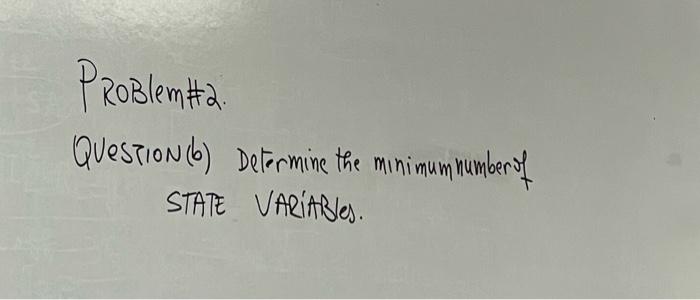 PROBlem#2.
QUESTION(b) Determine the minimum number of
STATE VARiABles.